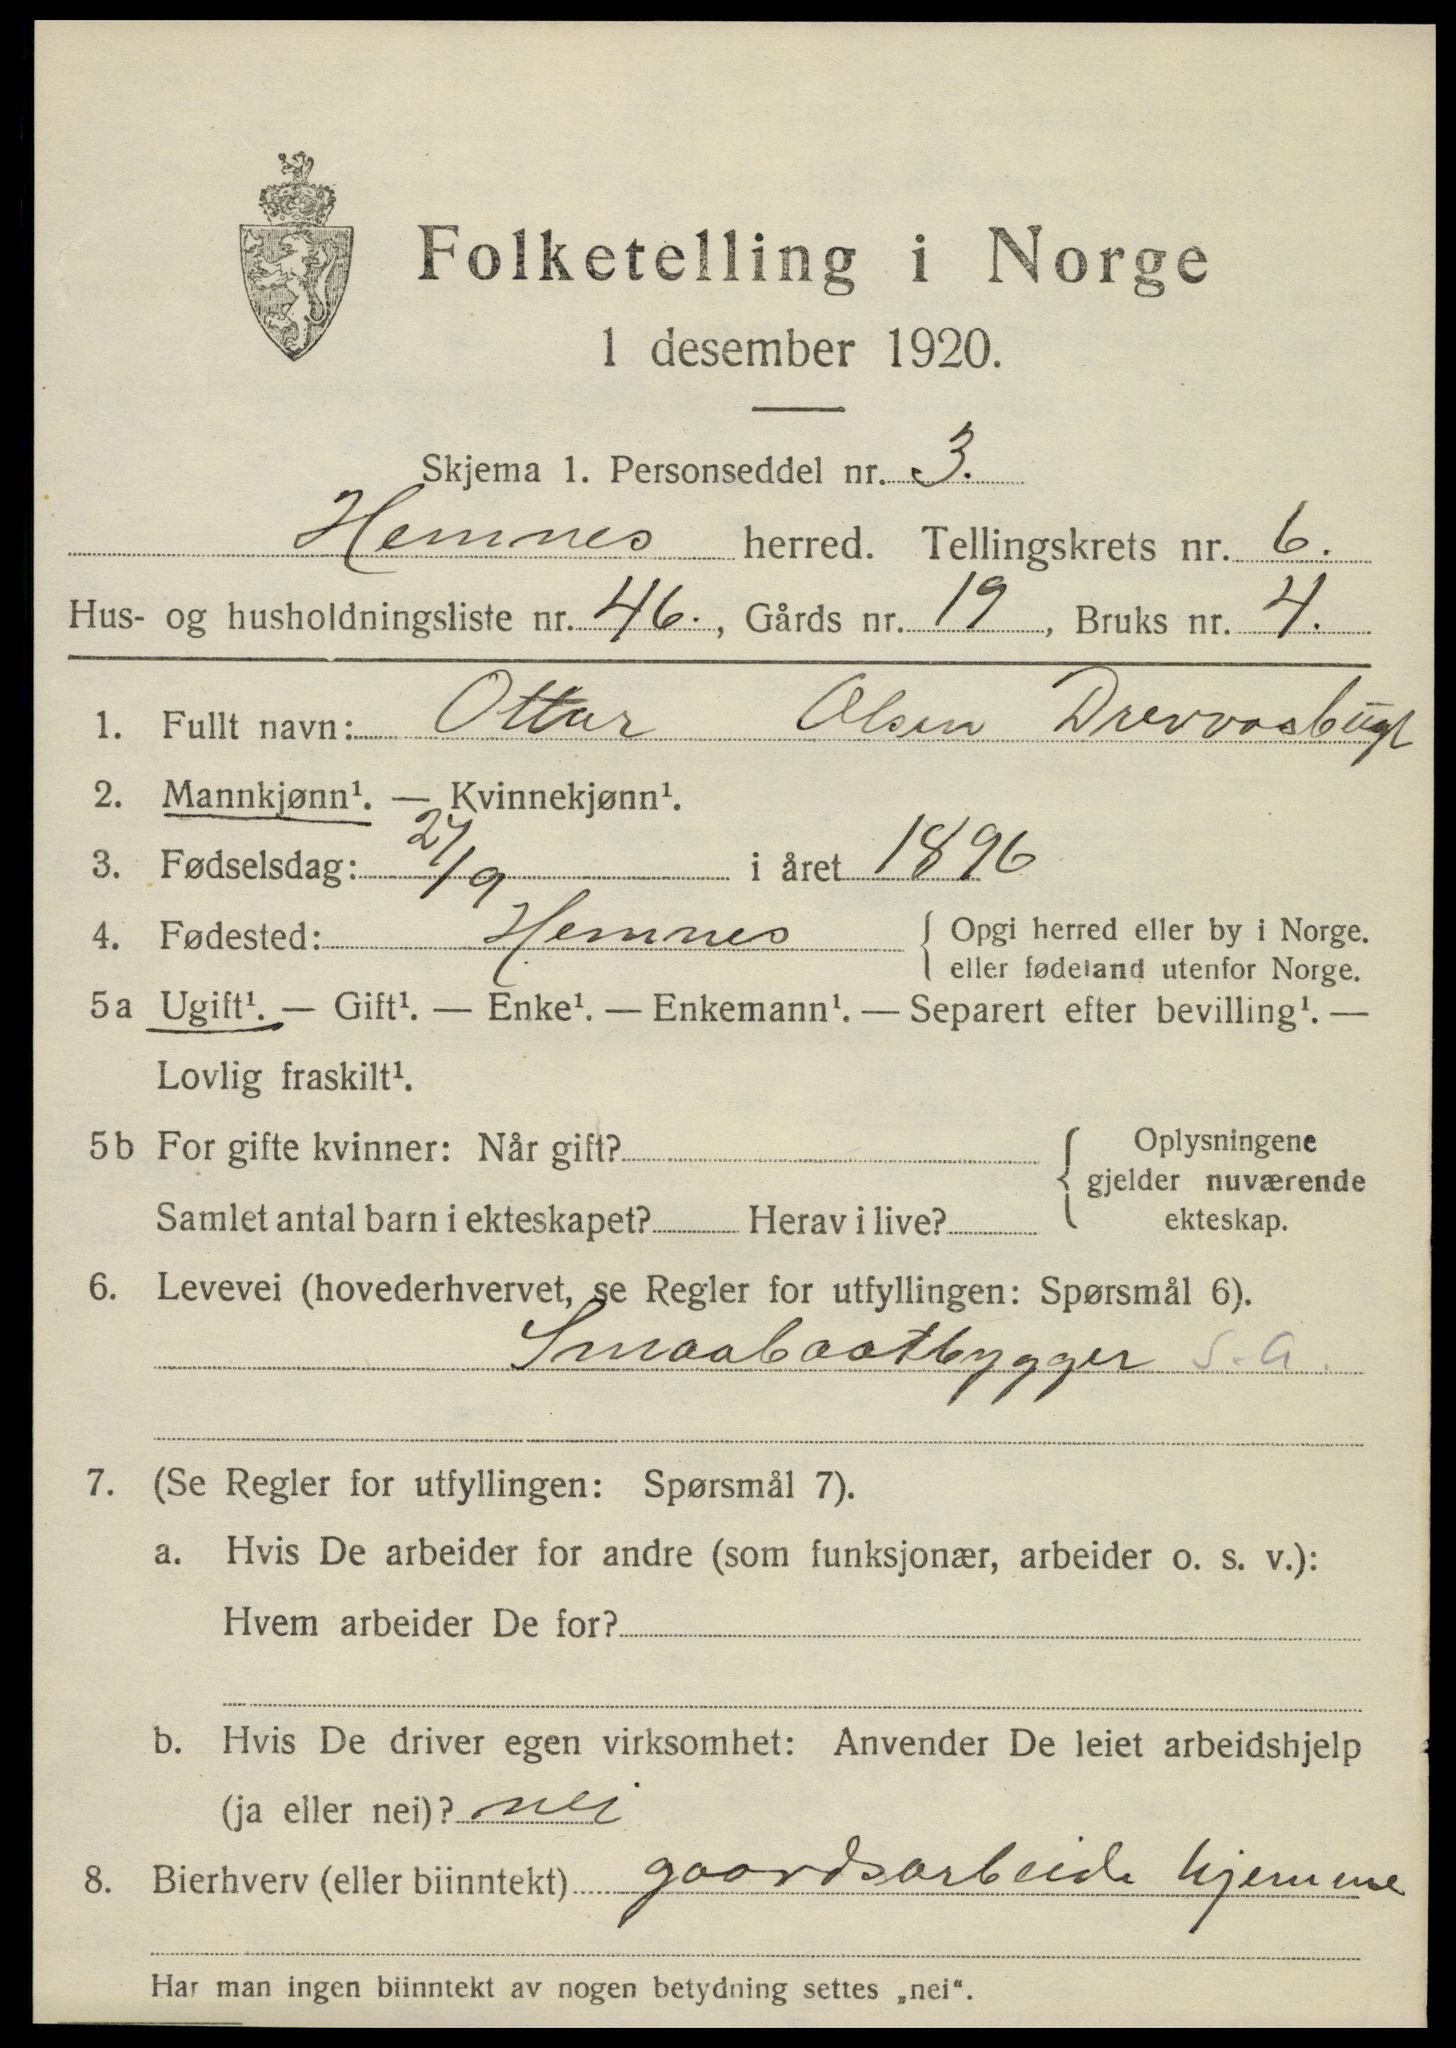 Folketelling i Norge
1 desember 1920.
Skjema 1. Personseddel nr. 3.
Hemnes herred. Tellingskrets nr. 6.
Hus- og husholdningsliste nr. 46., Gårds nr. 19, Bruks nr. 4.
1. Fullt navn: Ottar Olsen Drevvasbugt
2. Mannkjønn¹. — Kvinnekjønn¹.
3. Fødselsdag: 27/9 i året 1896
4. Fødested: Hemnes { Opgi herred eller by i Norge.
eller fødeland utenfor Norge.
5a Ugift¹. — Gift¹. — Enke¹. — Enkemann¹. — Separert efter bevilling¹. —
Lovlig fraskilt¹.
5b For gifte kvinner: Når gift? { Oplysningene
gjelder nuværende
Samlet antal barn i ekteskapet? Herav i live? ekteskap.
6. Levevei (hovederhvervet, se Regler for utfyllingen: Spørsmål 6).
Smaabaatbygger S.A.
7. (Se Regler for utfyllingen: Spørsmål 7).
a. Hvis De arbeider for andre (som funksjonær, arbeider o. s. v.):
Hvem arbeider De for?
b. Hvis De driver egen virksomhet: Anvender De leiet arbeidshjelp
(ja eller nei)? nei
8. Bierhverv (eller biinntekt) gaardsarbeide hjemme
Har man ingen biinntekt av nogen betydning settes „nei“.